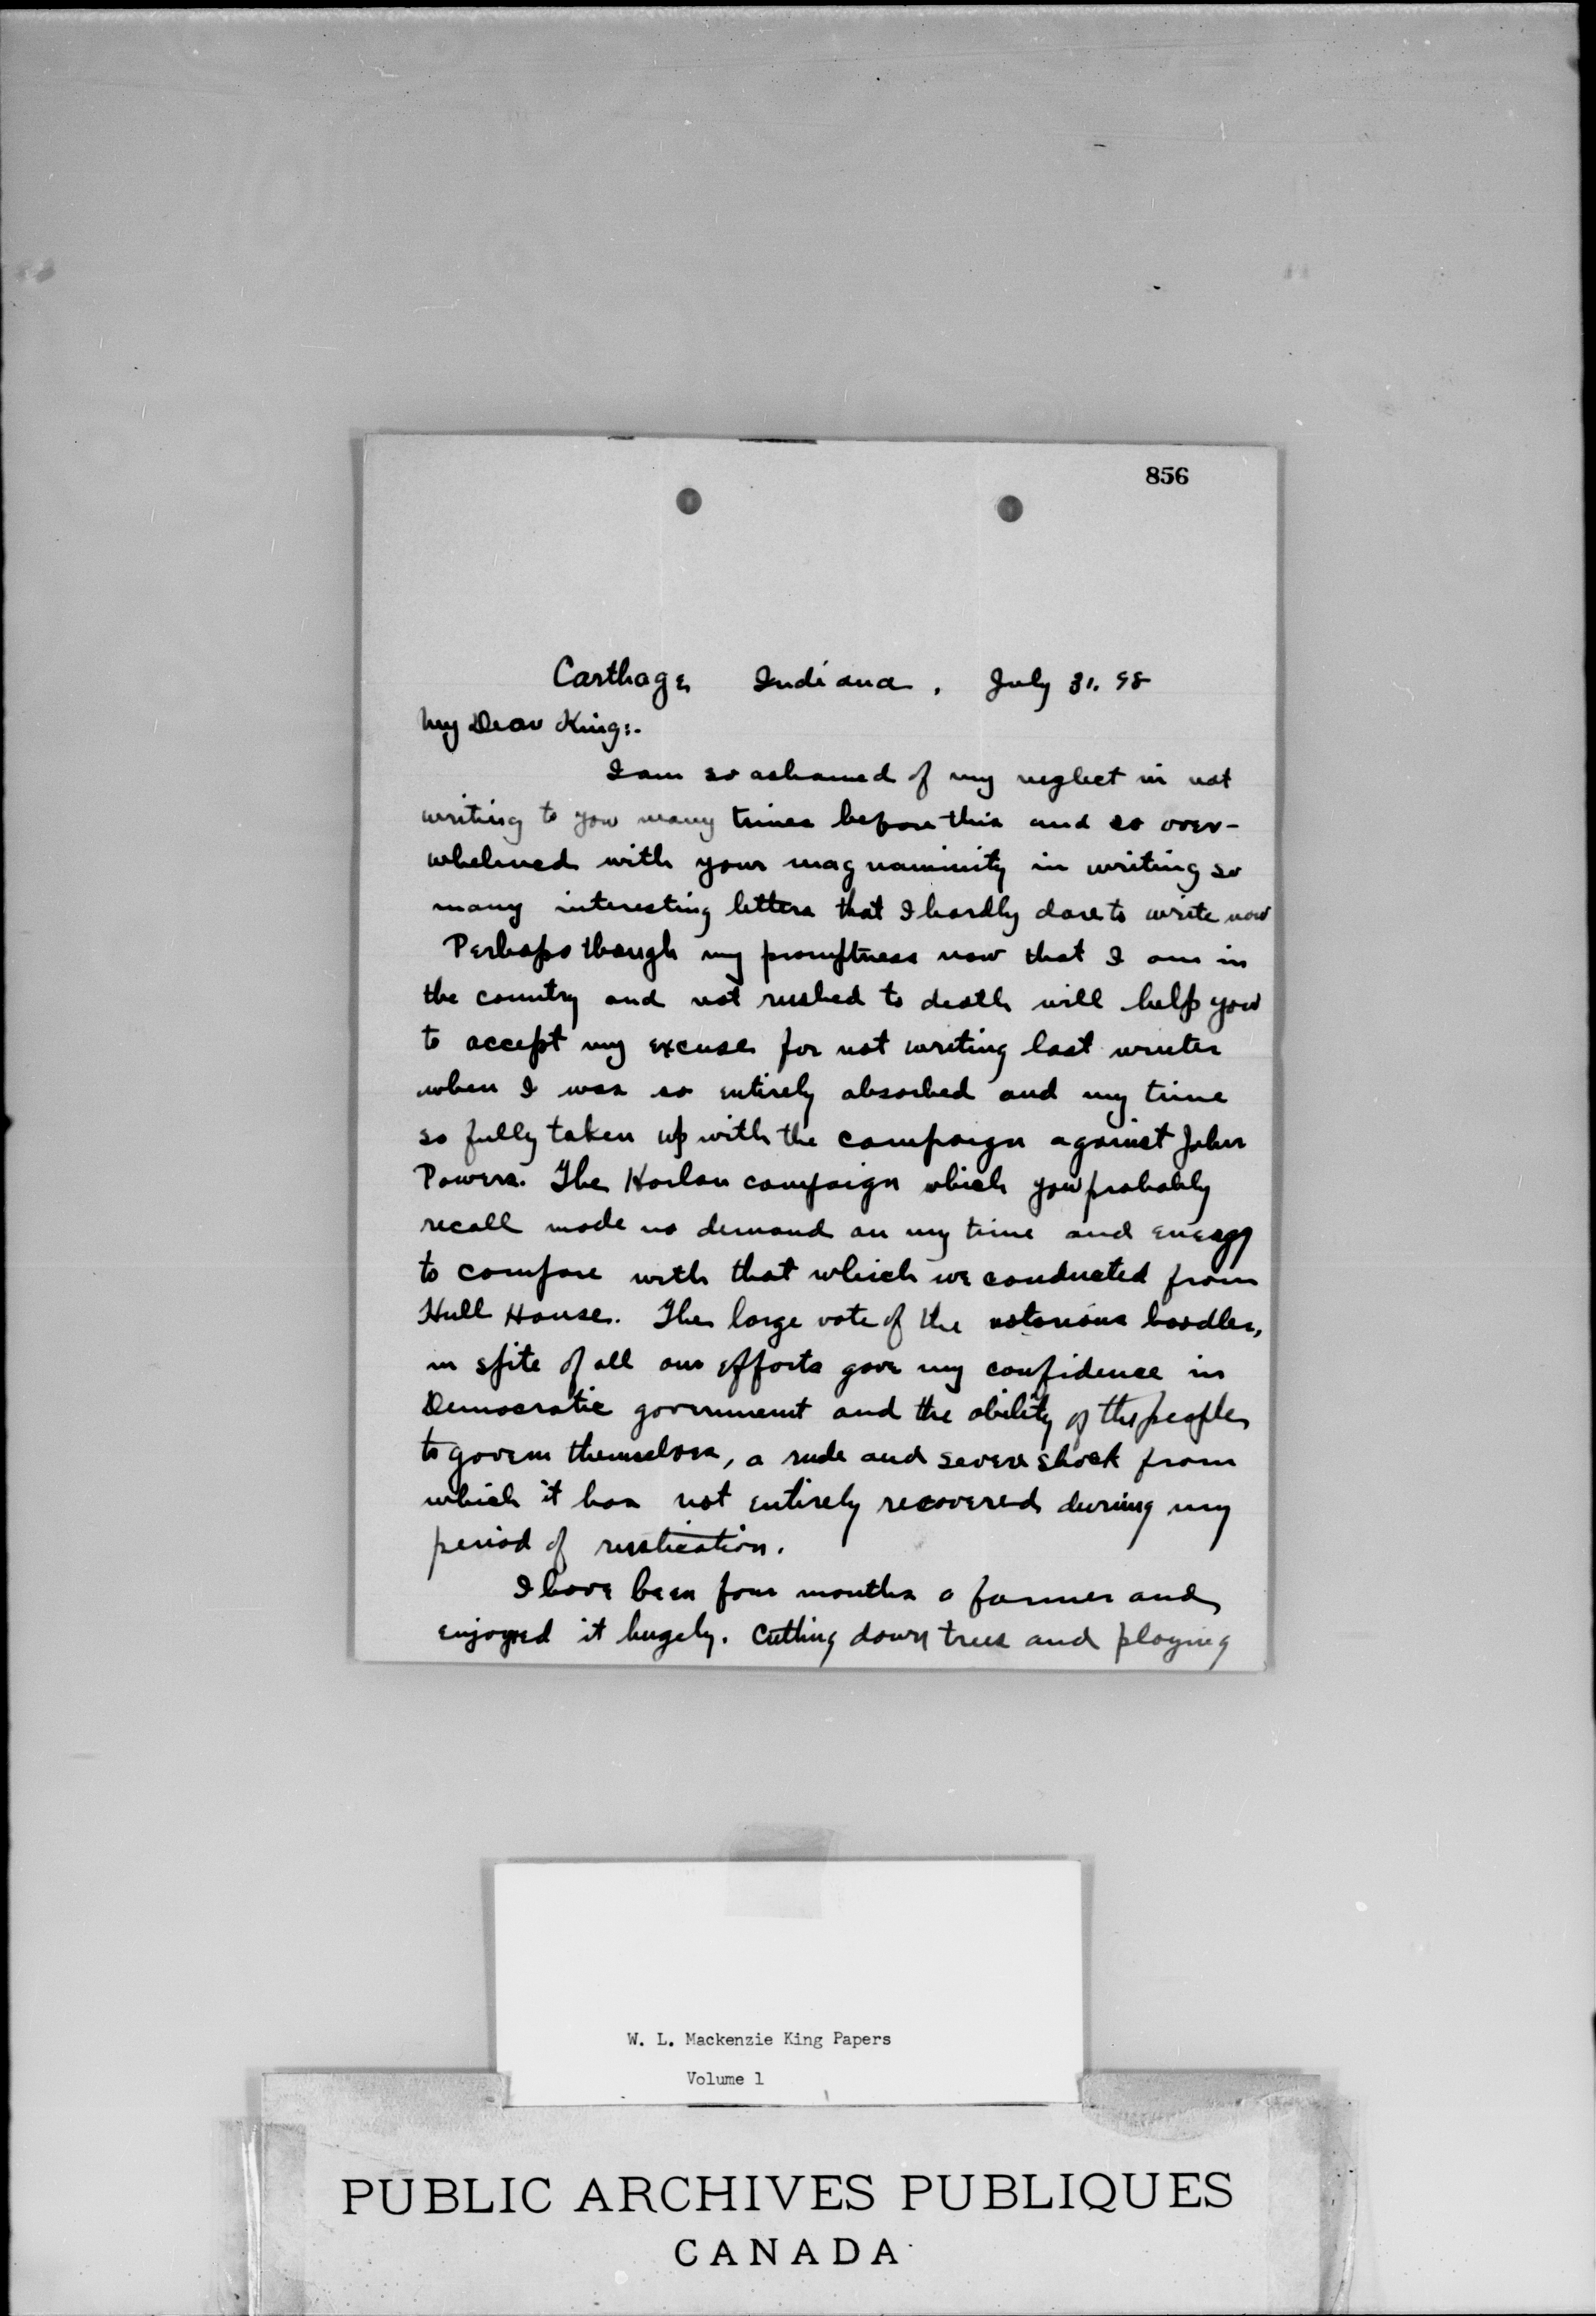 856
Carthage Indiana. July 31. 98
My Dear King:-
I am so ashamed of my neglect in not
writing to you many times before this and so over-
whelmed with your magnanimity in writing so
many interesting letters that I hardly dare to write now
Perhaps though my promptness now that I am in
the country and not rushed to death will help you
to accept my excuse for not writing last winter
when I was so entirely absorbed and my time
so fully taken up with the campaign against John
Powers. The Harlan campaign which you probably
recall made no demand on my time and energy
to compare with that which we conducted from
Hull House. The large vote of the notorious boodler,
in spite of all our efforts gave my confidence in
Democratic government and the ability of the people
to govern themselves, a rude and severe shock from
which it has not entirely recovered during my
period of rustication.
I have been four months a farmer and
enjoyed it hugely. Cutting down trees and playing
W. L. Mackenzie King Papers
Volume 1
PUBLIC ARCHIVES PUBLIQUES
CANADA